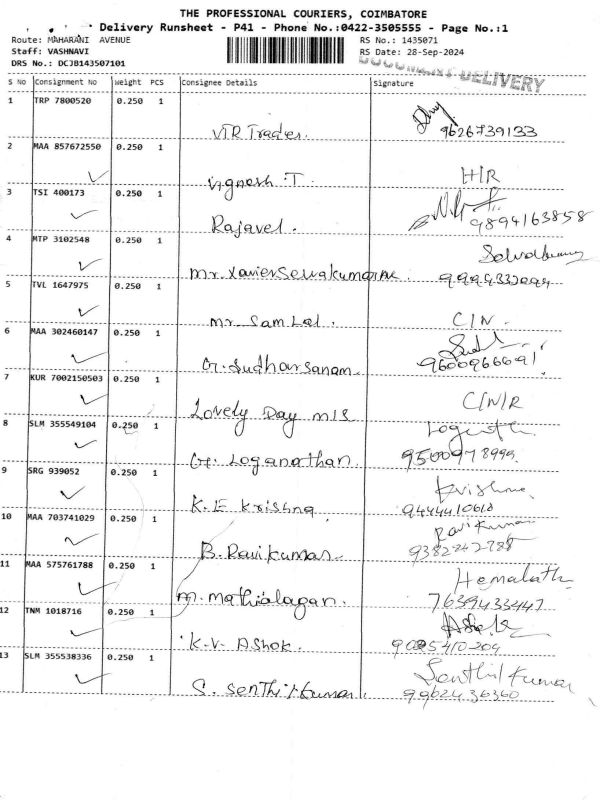 THE PROFESSIONAL COURIERS, COIMBATORE
Delivery Runsheet - P41 - Phone No.:0422-3505555 - Page No.:1
Route: MAHARANI AVENUE
RS No.: 1435071
Staff: VASHNAVI
RS Date: 28-Sep-2024
DRS No.: DCJB143507101
DOCUMENT DELIVERY
S No Consignment No Weight PCS Consignee Details Signature
1 TRP 7800520 0.250 1
VTR Traders. 9626739133
2 MAA 857672550 0.250 1
Vignesh T H/R
3 TSI 400173 0.250 1
Rajavel. 9894163858
4 MTP 3102548 0.250 1
Mr. Xavier Selvakumar 9994332099
5 TVL 1647975 0.250 1
Mr. Sam Lal. C/N.
6 MAA 302460147 0.250 1
G. Sudharsanam. 9600966691
7 KUR 7002150503 0.250 1
Lovely Day M/S C/N/R
8 SLM 355549104 0.250 1
G. Loganathan. 9500978999.
9 SRG 939052 0.250 1
Krishna
K.E Krishna 9444410610
10 MAA 703741029 0.250 1
Ravikumar
B. Ravikumar. 9382242788
11 MAA 575761788 0.250 1
Hemalath
M. Mathialagan. 7639433447
12 TNM 1018716 0.250 1
Ashok
K.V. Ashok. 9095410204
13 SLM 355538336 0.250 1
Senthil Kumar
S. Senthil Kumar. 9962436360